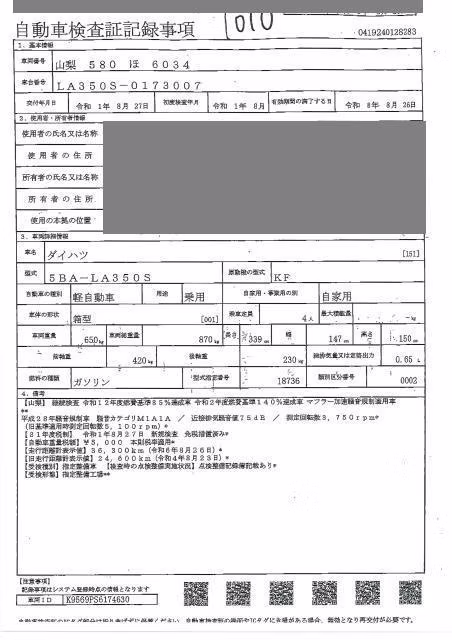 自動車検査証記録事項
010
0419240128283
1．基本情報
車両番号 山梨 580 ほ 6034
車台番号 LA350S-0173007
交付年月日 令和 1年 8月 27日 初度検査年月 令和 1年 8月 有効期間の満了する日 令和 8年 8月 26日
2．使用者・所有者情報
使用者の氏名又は名称
使用者の住所
所有者の氏名又は名称
所有者の住所
使用の本拠の位置
3．車両詳細情報
車名 ダイハツ [151]
型式 5BA-LA350S 原動機の型式 KF
自動車の種別 軽自動車 用途 乗用 自家用・事業用の別 自家用
車体の形状 箱型 [001] 乗車定員 4人 最大積載量 -kg
車両重量 650kg 車両総重量 870kg 長さ 339cm 幅 147cm 高さ 150cm
前軸重 420kg 後軸重 230kg 総排気量又は定格出力 0.65L
燃料の種類 ガソリン 型式指定番号 18736 類別区分番号 0002
4．備考
【山梨】 継続検査 令和12年度燃費基準85%達成車 令和2年度燃費基準140%達成車 マフラー加速騒音規制適用車
**
平成28年騒音規制車 騒音カテゴリM1A1A ／ 近接排気騒音値75dB ／ 測定回転数3,750rpm*
(旧基準適用時測定回転数5,100rpm)*
【31年度税制】 令和1年8月27日 新規検査 免税措置済み*
【自動車重量税額】 ¥5,000 本則税率適用*
【走行距離計表示値】 36,300km (令和6年8月26日)*
【旧走行距離計表示値】 24,600km (令和4年8月23日)*
【受検種別】 指定整備車 【検査時の点検整備実施状況】 点検整備記録簿記載あり*
【受検形態】 指定整備工場**
【注意事項】
記録事項はシステム登録時点の情報となります
車両ID K9569PS6174630